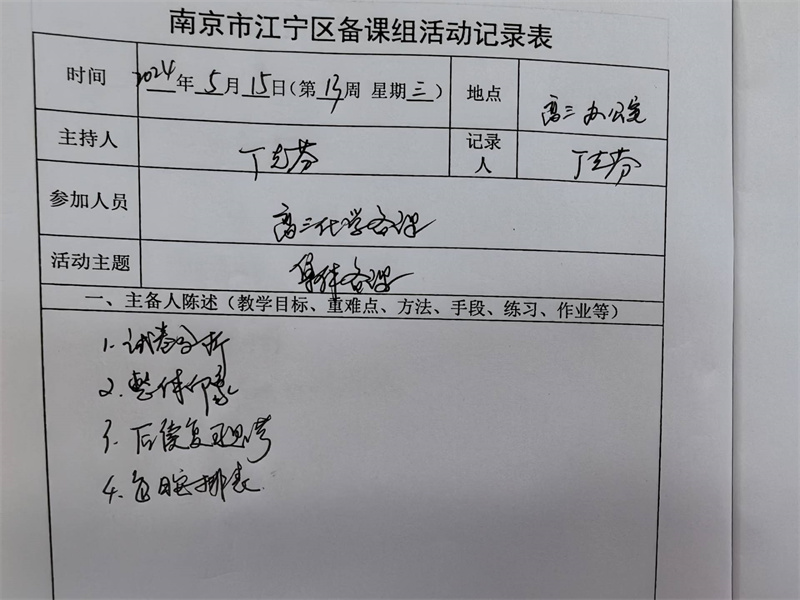 南京市江宁区备课组活动记录表
时间 2024年5月15日(第13周 星期三) 地点 高三办公室
主持人 丁克芬 记录人 丁克芬
参加人员 高三化学备课
活动主题 集体备课
一、主备人陈述（教学目标、重难点、方法、手段、练习、作业等）
1. 试卷分析
2. 整体印象
3. 后续复习思考
4.